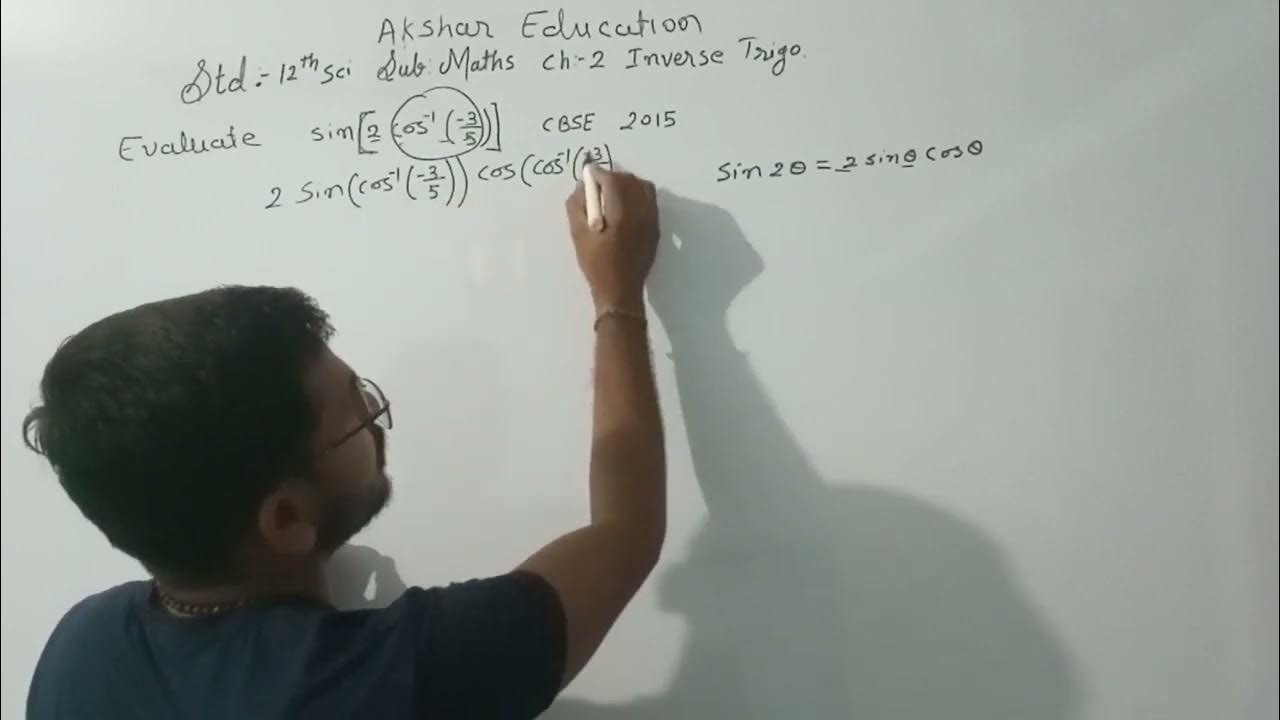 Akshar Education
Std:- 12th Sci Sub: Maths Ch:-2 Inverse Trigo.
Evaluate sin[2 cos⁻¹(-3/5)] CBSE 2015
2 Sin(cos⁻¹(-3/5)) cos(cos⁻¹(-3
Sin 2θ = 2 sinθ Cosθ